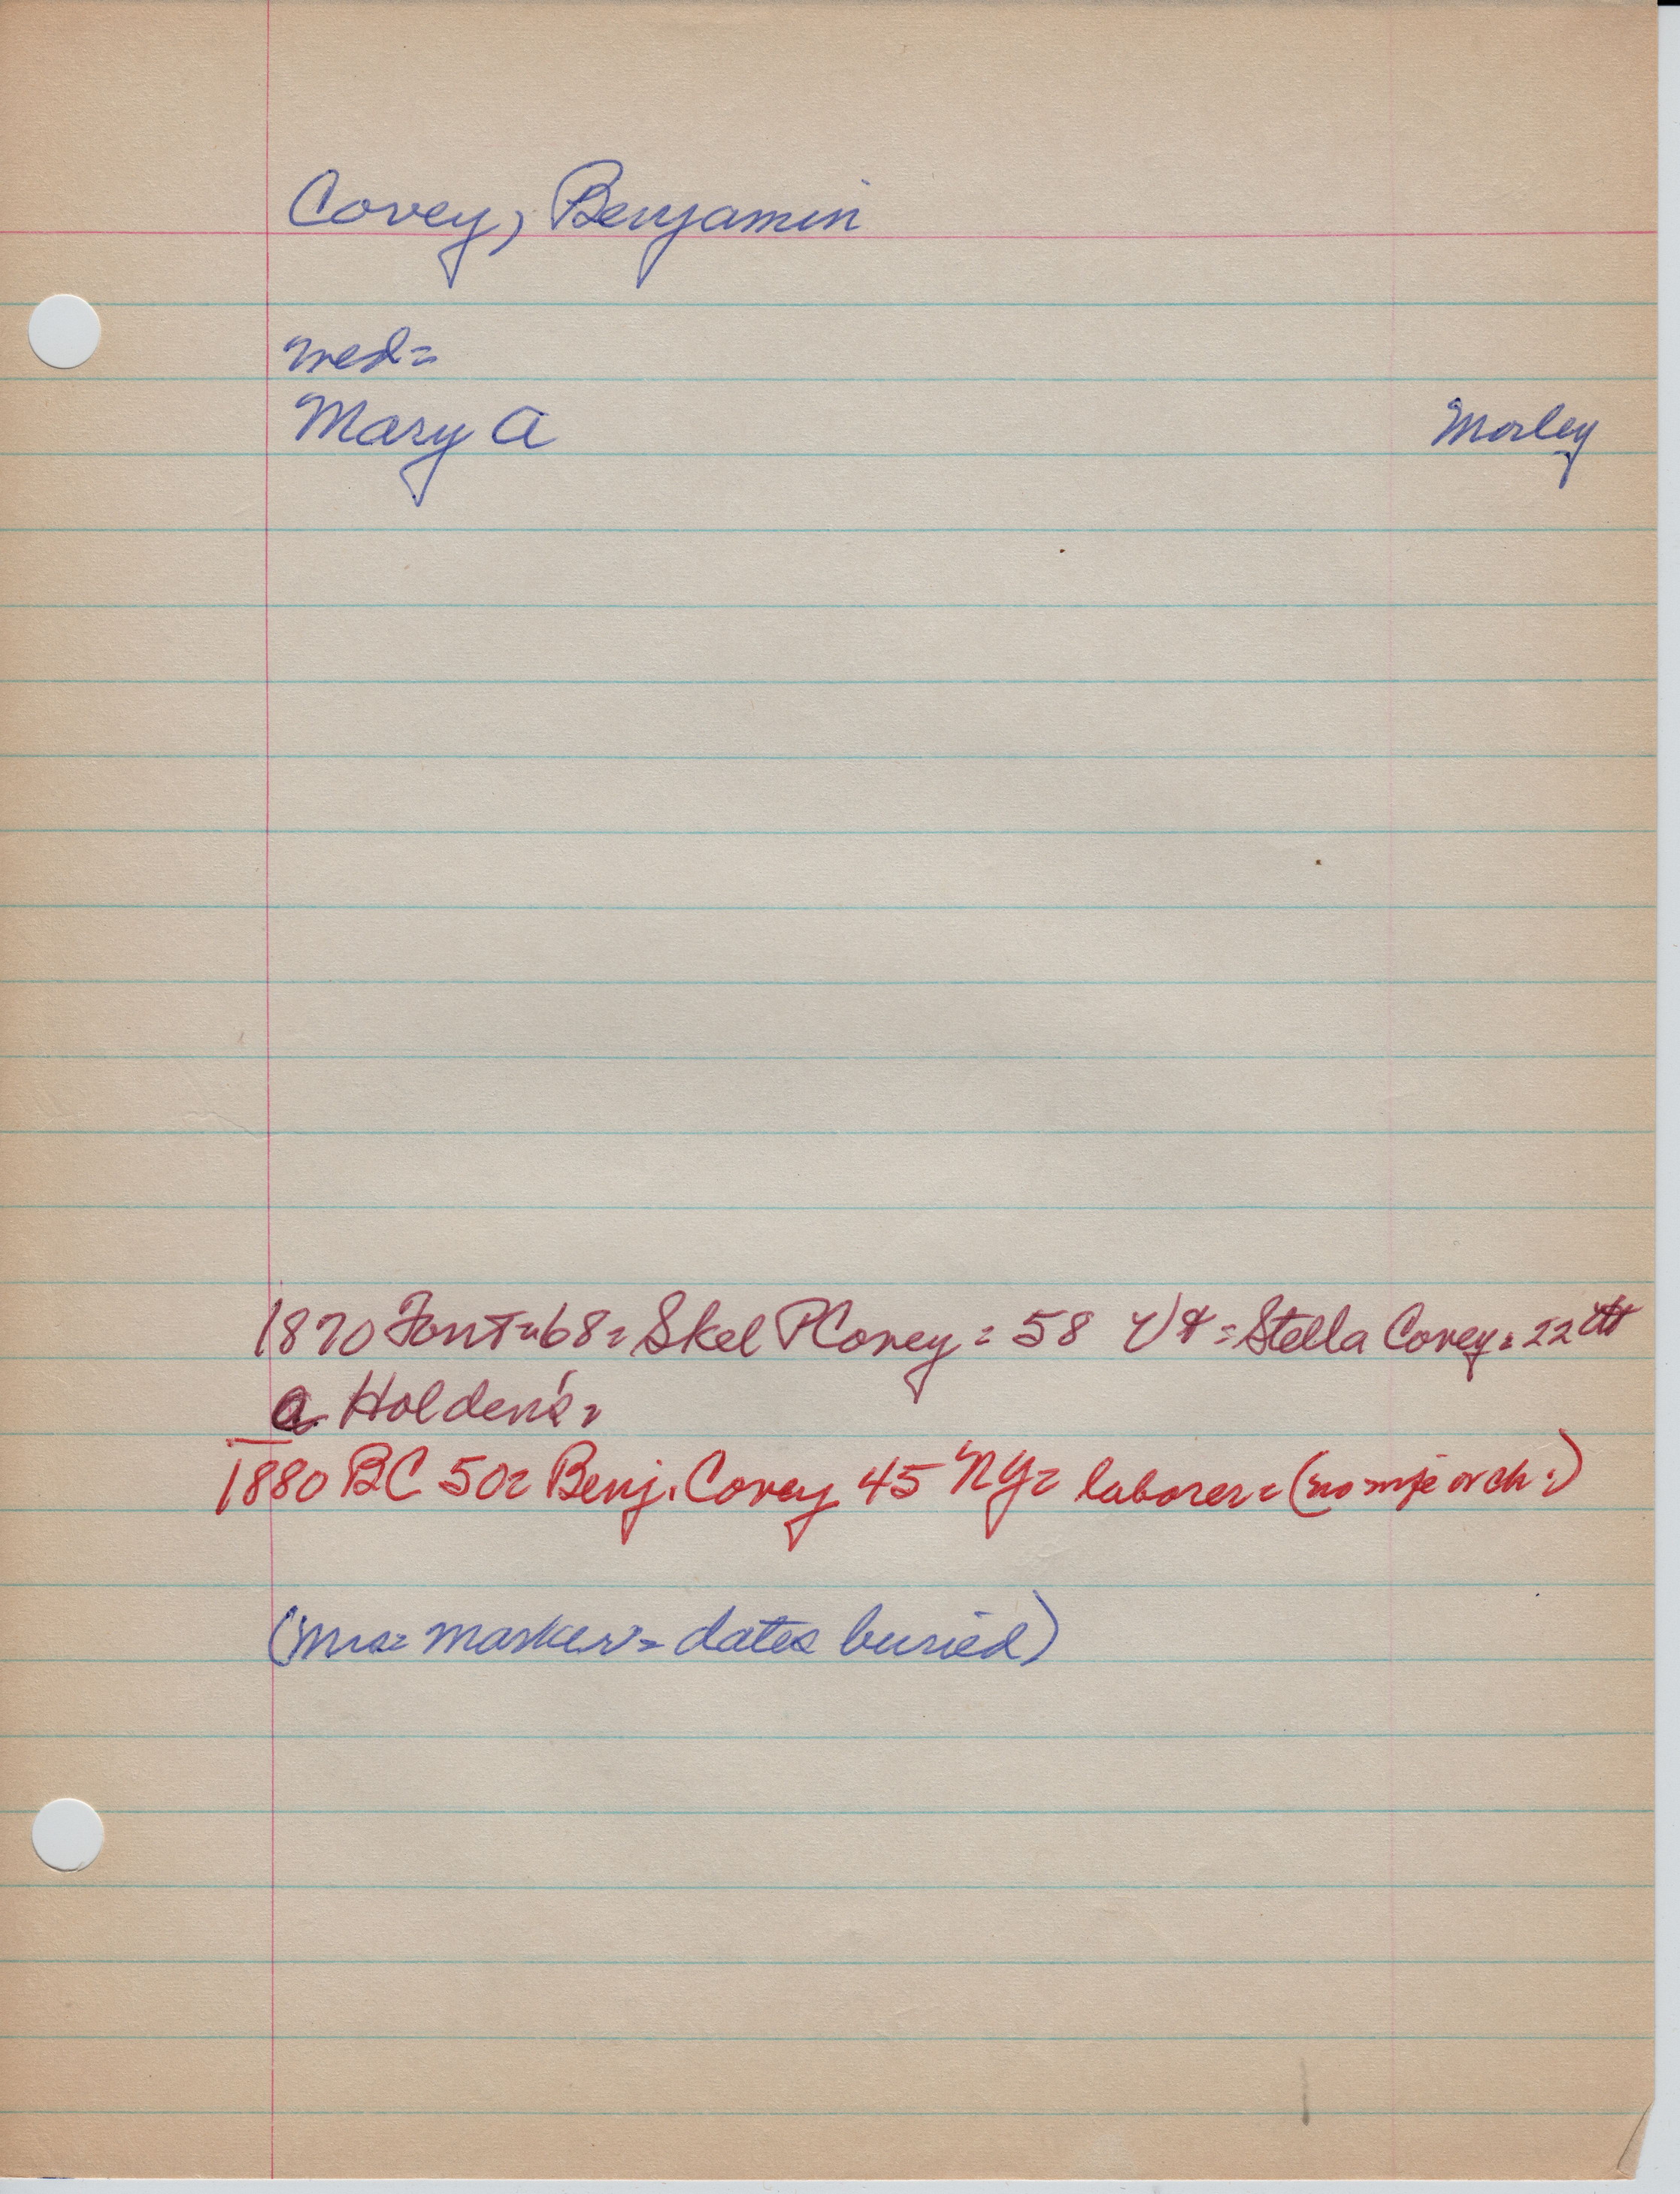 Covey, Benjamin
med=
Mary A Morley
1870 Font=68= Skel P Covey = 58 Vt = Stella Covey = 22
a Holden's =
1880 BC 50= Benj. Covey 45 NY= laborer= (no wife or ch.)
(Mrs= marker= dates buried)